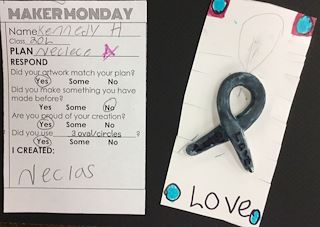 MAKER MONDAY
Name Kennedy H
Class 30L
PLAN Neclece
RESPOND
Did your artwork match your plan?
Yes Some No
Did you make something you have
made before?
Yes Some No
Are you proud of your creation?
Yes Some No
Did you use 3 oval/circles ?
Yes Some No
I CREATED:
Neclas
LOVE